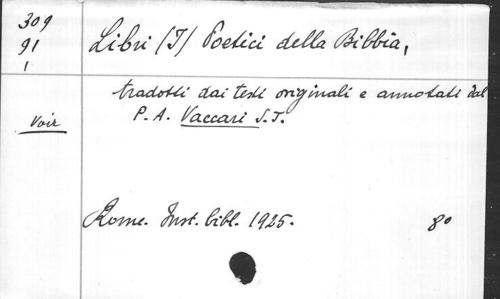 309
91
1
Libri (I) Poetici della Bibbia,
tradotti dai testi originali e annotati dal
Voir
P. A. Vaccari S.J.
Rome. Inst. bibl. 1925. 8º